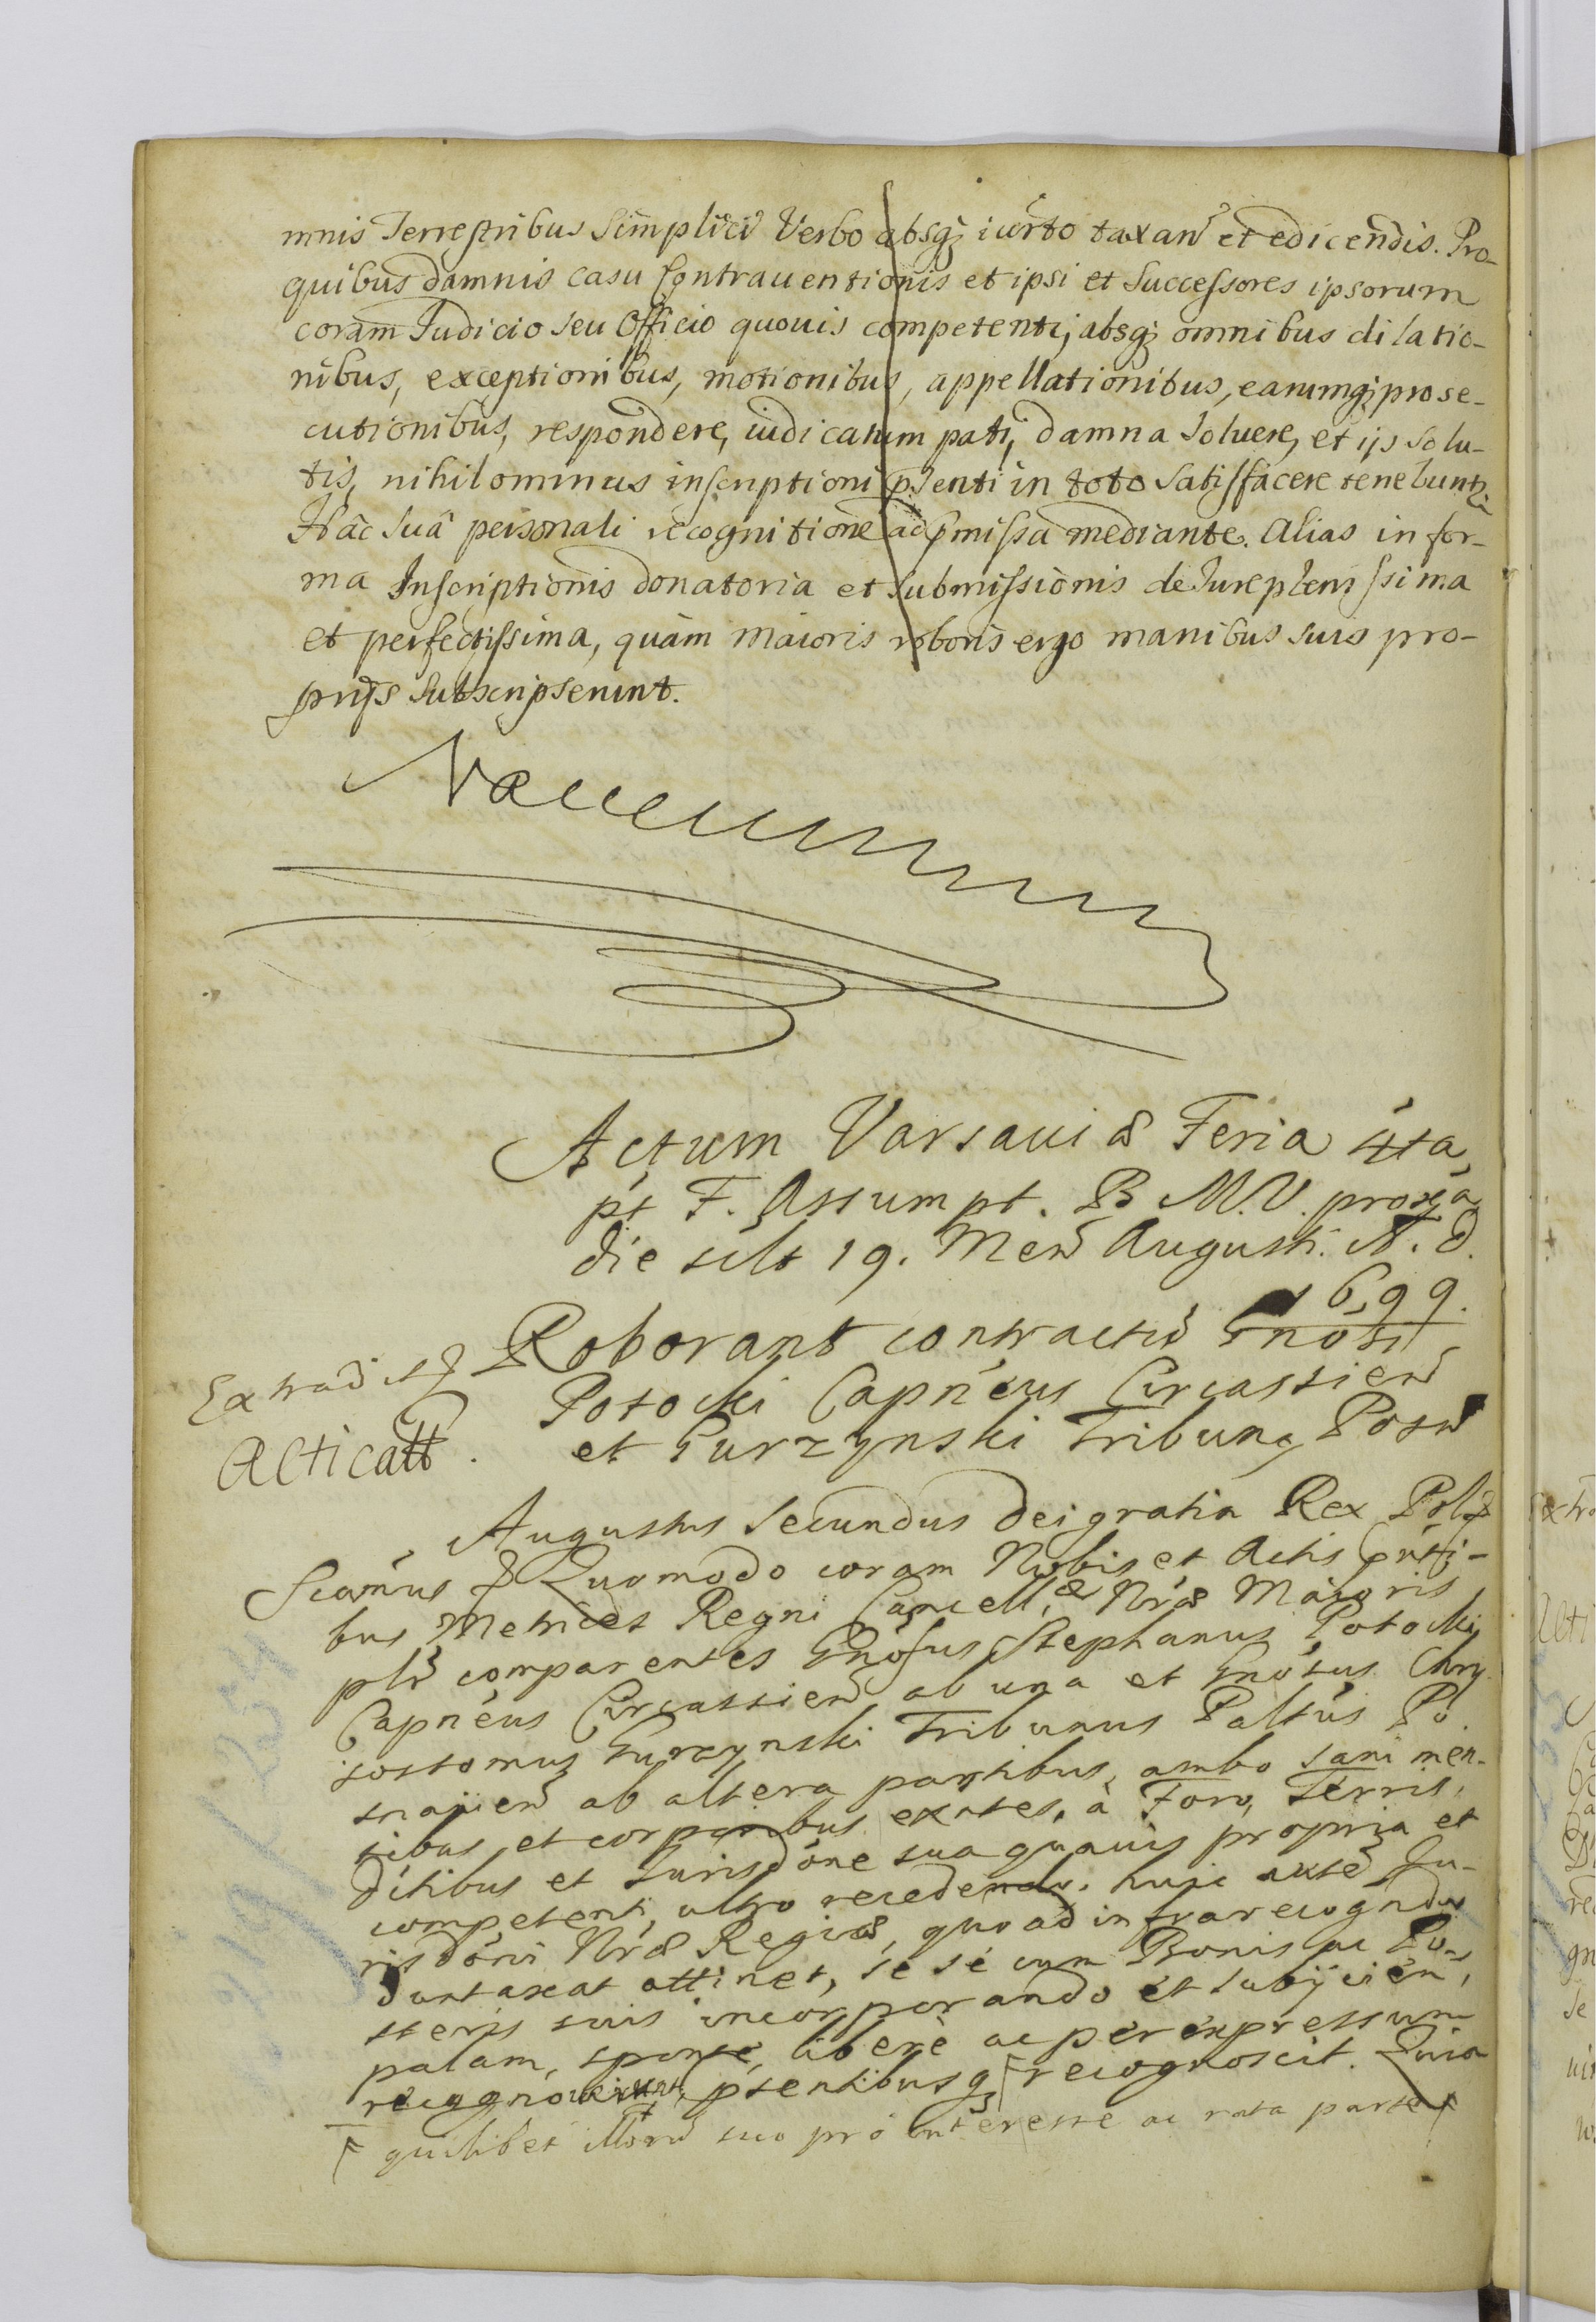 mnis Terrestribus Simplici Verbo absq; iurto taxan et edicendis. Pro-
quibus damnis casu Contrauentionis et ipsi et Successores ipsorum
coram Judicio seu Officio quouis competenti, absq; omnibus dilatio-
nibus, exceptionibus, motionibus, appellationibus, earumq; prose-
cutionibus, respondere, iudicatum pati, damna soluere, et ijs solu-
tis, nihilominus inscriptioni psenti in toto satisfacere tenebunt
Hâc suâ personali recognitione ad pmissa mediante. Alias in for-
ma Inscriptionis donatoria et submissionis de Jure plenissima
et perfectissima, quàm maioris roboris ergo manibus suis pro-
prijs subscripserunt.
Actum Varsauiæ Feria 4ta,
pt F. Assumpt. B M.V. proxa
die scilt 19. Men Augusti. A. d.
1699.
Roborant contractu Gnosi
Extradit
Potocki Capneus Circassien
Acticatt.
et Gurzynski Tribunq Posn
Augustus Secundus Dei gratia Rex Pol
Scamus Quomodo coram Nobis et Actis pnti-
bus Metrices Regni Cancell,æ Nræ Maioris
plr comparentes Gnosus Stephanus Potocki
Capneus Circassien ab una et Gnosus Chry
sostomus Gurzynski Tribunus Paltus Po
snaijen ab altera partibus, ambo sani men-
tibus et corporibus exntes, à Foro, Terris,
Ditibus et Jurisdone sua quauis propria et
competenti, ultro recedendo, huic aute Ju-
risdoni Nræ Regiæ, quo ad infra recognda
duntaxat attinet, se se cum Bonis ac Po-
steris suis incorporando et subijcien,
palam, sponte, liberè ac per expressum
recognouerunt, psentibusq; recognoscit. Quia
quilibet illoru suo pro interesse ac rata parte